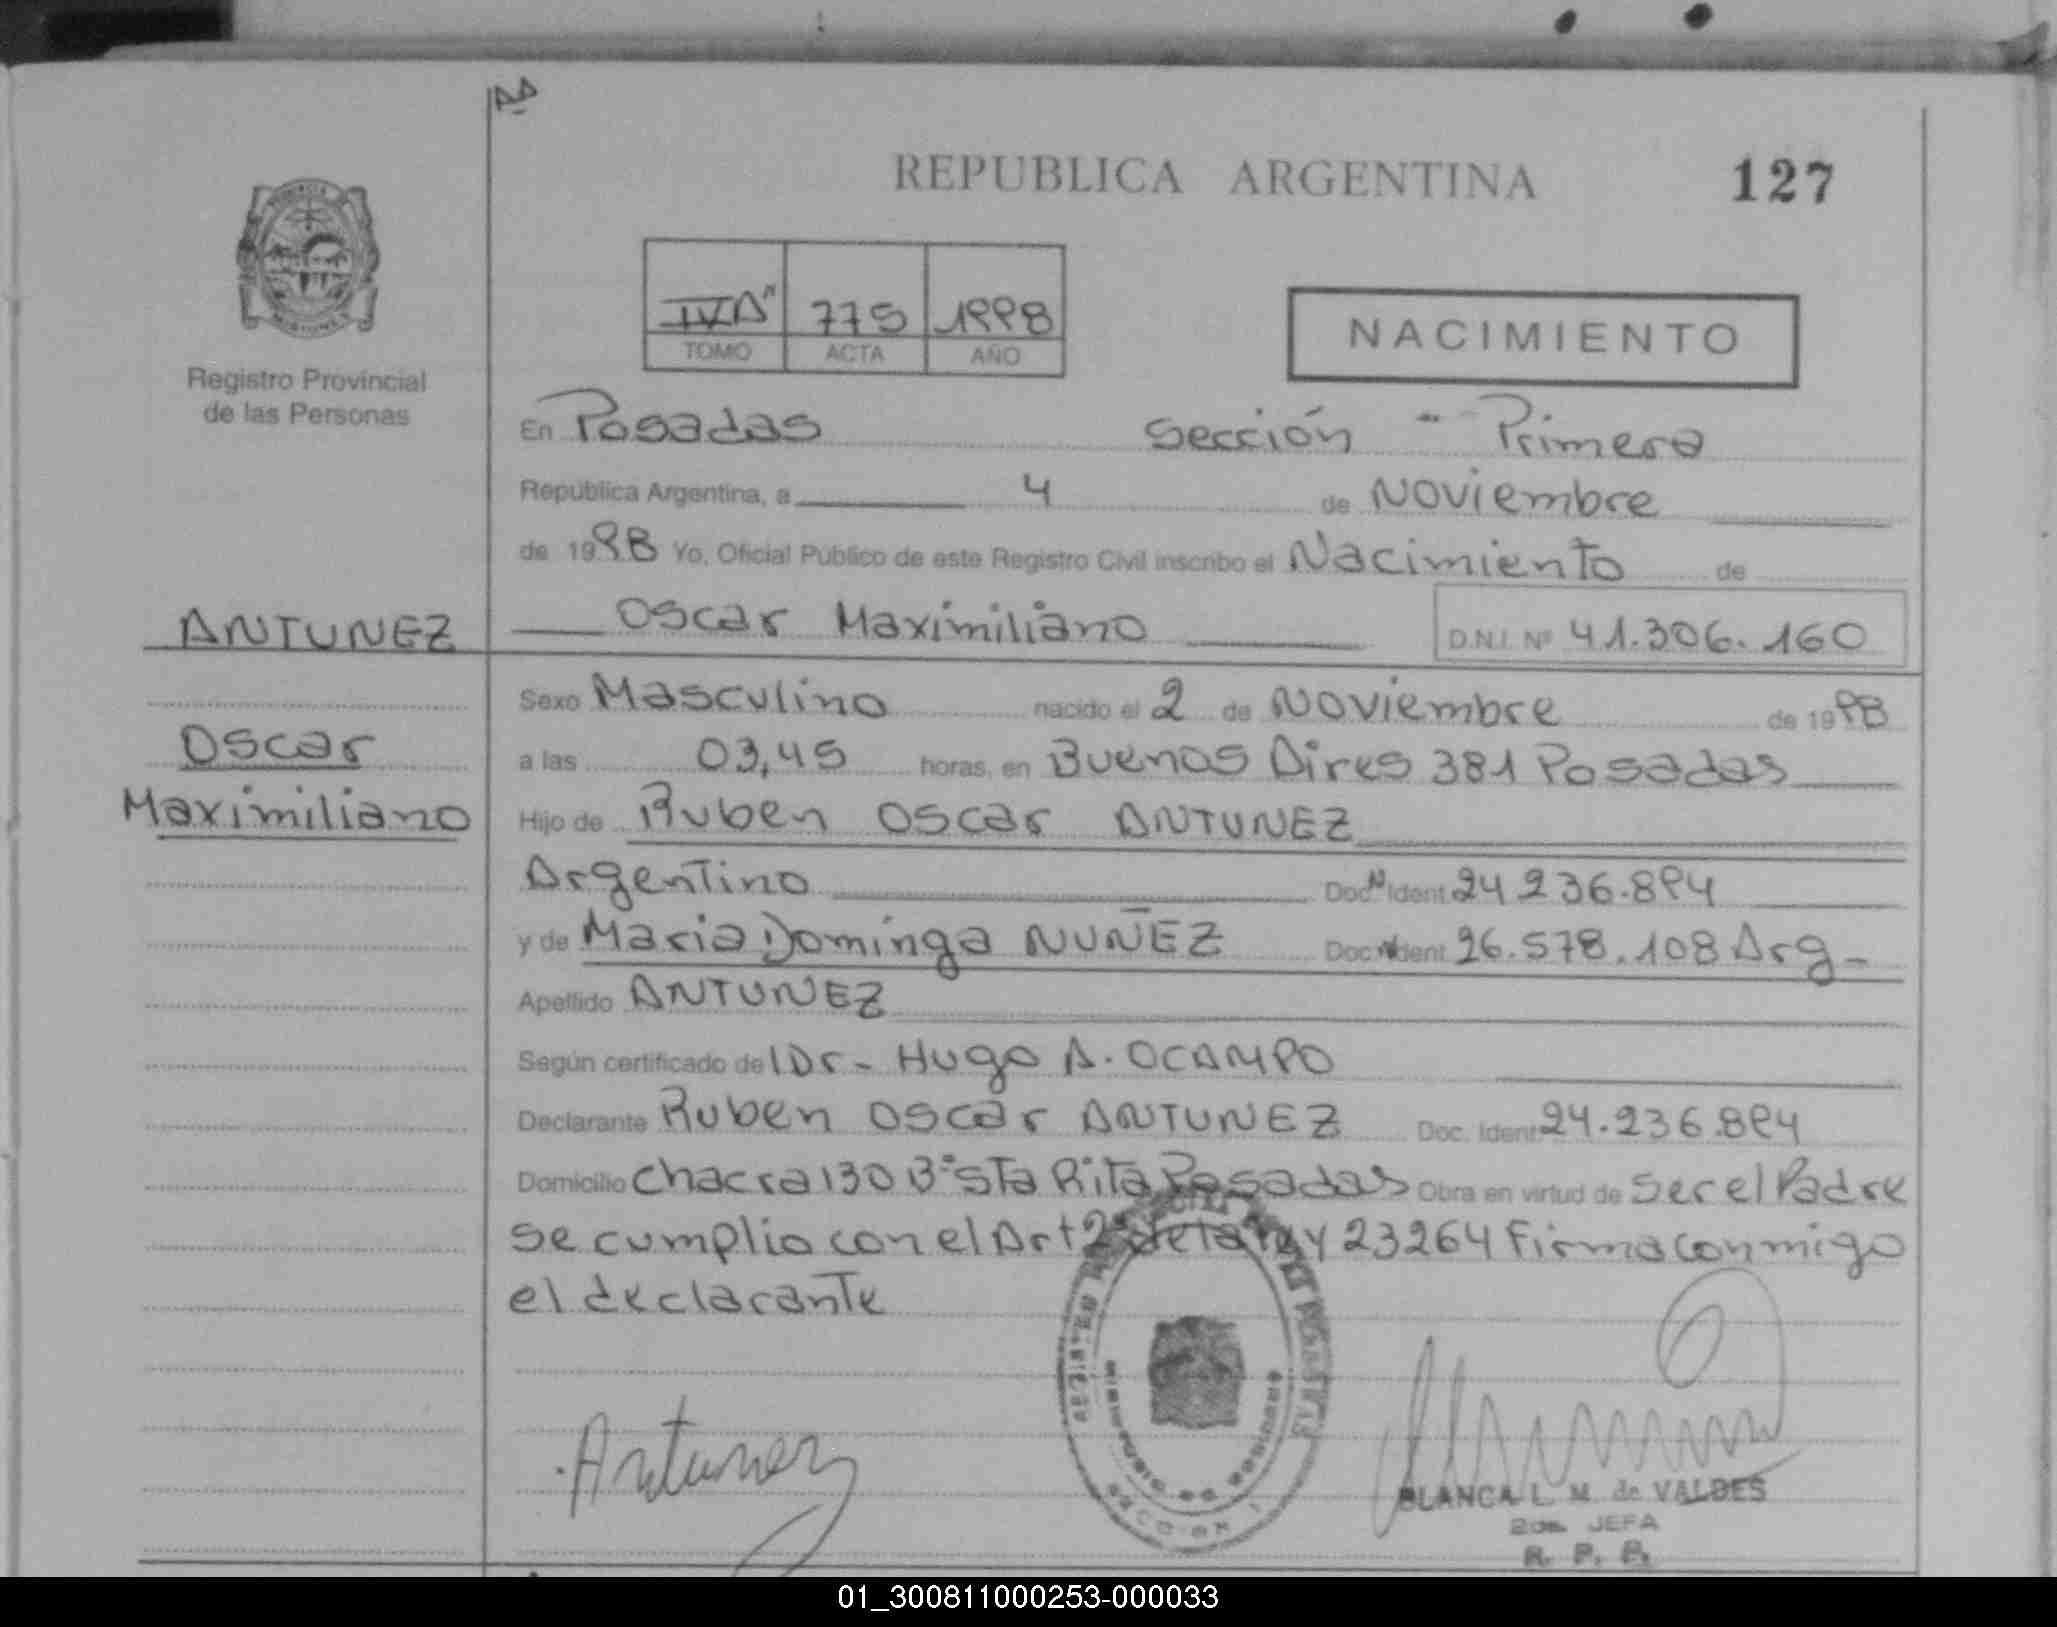 REPUBLICA ARGENTINA
127
775 1998
TOMO ACTA AÑO
NACIMIENTO
Registro Provincial
de las Personas
En Posadas Sección - Primera
República Argentina, a 4 de Noviembre
de 1998 Yo, Oficial Público de este Registro Civil inscribo el Nacimiento de
ANTUNEZ
Oscar Maximiliano D.N.I. Nº 41.306.160
Sexo Masculino nacido el 2 de Noviembre de 1998
Oscar
Maximiliano
a las 03,45 horas, en Buenos Aires 381 Posadas
Hijo de Ruben Oscar ANTUNEZ
Argentino Doc. Ident. 24 236.894
y de Maria Dominga NUÑEZ Doc. Ident. 26.578.108 Arg-
Apellido ANTUNEZ
Según certificado del Dr- Hugo A. OCAMPO
Declarante Ruben Oscar ANTUNEZ Doc. Ident. 24.236.894
Domicilio Chacra 130 Bº Sta Rita Posadas Obra en virtud de ser el Padre
se cumplio con el Art 2º de la ley 23264 Firma conmigo
el declarante
Antunez
BLANCA L. M. de VALDES
2da. JEFA
R. P. P.
01_300811000253-000033